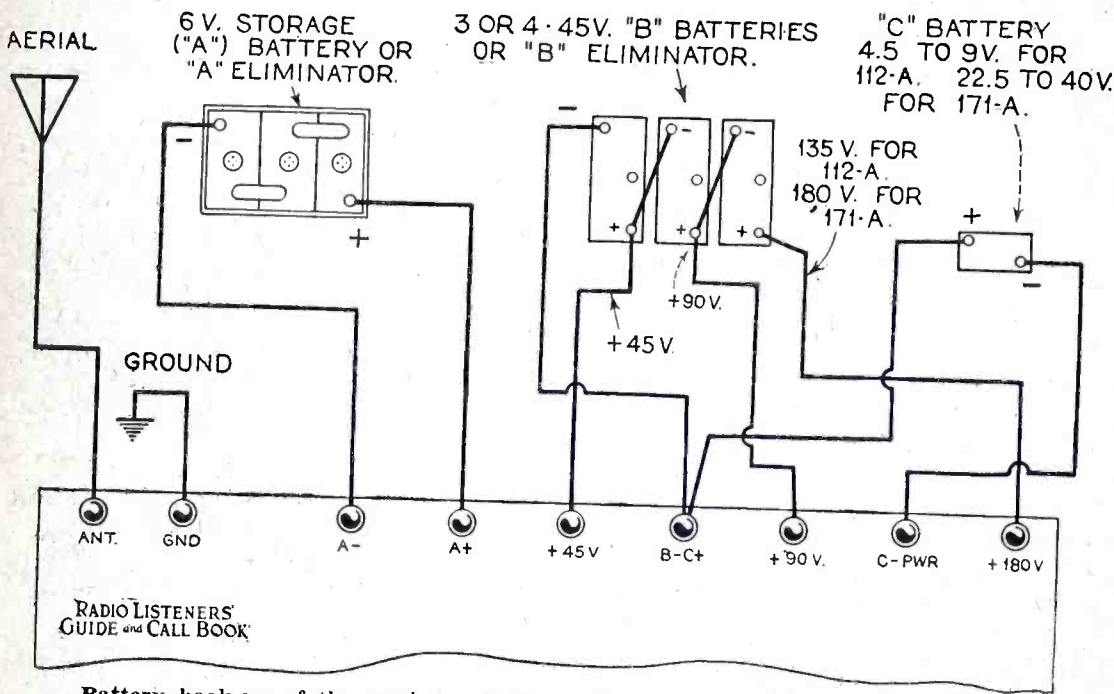 AERIAL
6 V. STORAGE
("A") BATTERY OR
"A" ELIMINATOR.
3 OR 4 - 45 V. "B" BATTERIES
OR "B" ELIMINATOR.
"C" BATTERY
4.5 TO 9 V. FOR
112-A. 22.5 TO 40 V.
FOR 171-A.
-
+
-
-
-
+
+
+
135 V. FOR
112-A.
180 V. FOR
171-A.
+
-
+90 V.
+45 V.
GROUND
ANT.
GND
A-
A+
+45 V
B-C+
+90 V.
C-PWR
+180 V
RADIO LISTENERS'
GUIDE and CALL BOOK